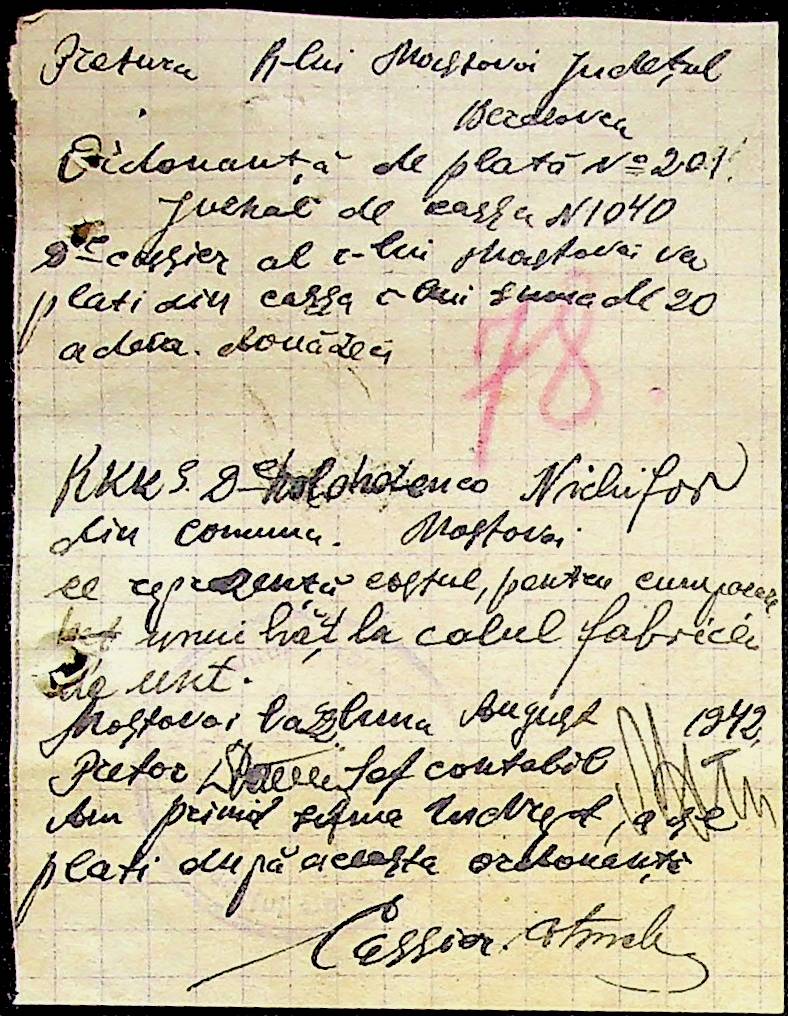 Pretura R-lui Mostovoi Judeţul
Berezovca
Ordonanţă de plată № 201
Jurnal de cassa N 1040
D-l cassier al r-lui Mostovoi va
plati din cassa r-lui suma de 20
adeca. douăzeci
78.
RKKS. D-l Nichifor
din comuna. Mostovoi
ce reprezentă costul, pentru cumpărare
unui hăţ la calul fabricei
de unt.
Mostovoi la luna August 1942,
Pretor Şef contabil
Am primit suma a se
plati după aceasta ordonanţă
Cassier.